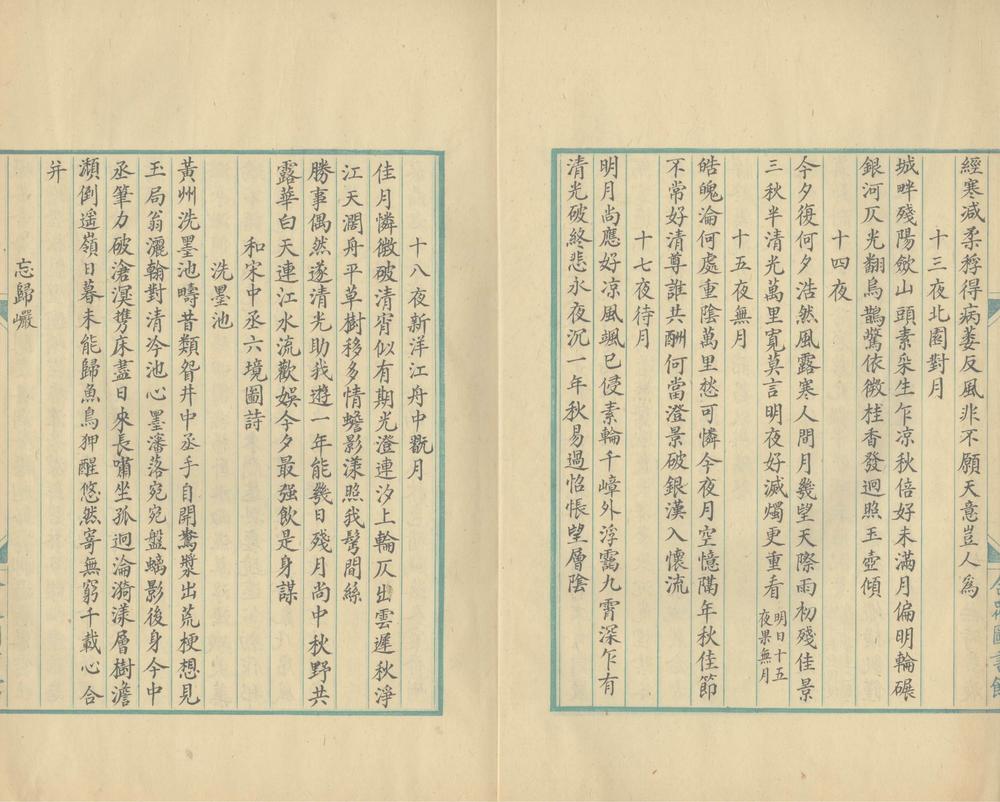 經寒減柔稃得病萎反風非不願天意豈人為
十三夜北園對月
城畔殘陽斂山頭素采生乍凉秋倍好未滿月偏明輪碾
銀河仄光翻烏鵲驚依微桂香發迥照玉壺傾
十四夜
今夕復何夕浩然風露寒人間月幾望天際雨初殘佳景
三秋半清光萬里寬莫言明夜好滅燭更重看明日十五夜果無月
十五夜無月
皓魄淪何處重陰萬里愁可憐今夜月空憶隔年秋佳節
不常好清尊誰共酬何當澄景破銀漢入懷流
十七夜待月
明月尚應好凉風颯已侵素輪千嶂外浮靄九霄深乍有
清光破終悲永夜沉一年秋易過怊悵望層陰
十八夜新洋江舟中翫月
佳月憐微破清宵似有期光澄連汐上輪仄出雲遲秋淨
江天濶舟平草樹移多情蟾影漾照我鬢間絲
勝事偶然遂清光助我遊一年能幾日殘月尚中秋野共
露華白天連江水流歡娛今夕最强飲是身謀
和宋中丞六境圖詩
洗墨池
黃州洗墨池疇昔類眢井中丞手自開驚漿出荒梗想見
玉局翁灑翰對清冷池心墨瀋落宛宛盤螭影後身今中
丞筆力破滄溟携床盡日來長嘯坐孤迥淪漪漾層樹澹
瀩倒遥嶺日暮未能歸魚鳥狎醒悠然寄無窮千載心合
并
忘歸巖